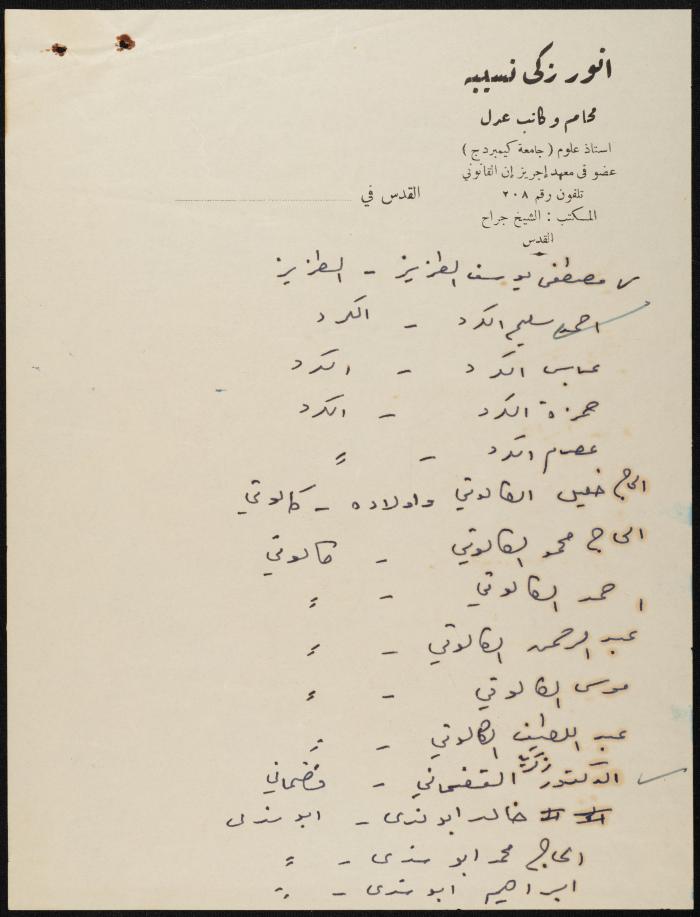 انور زكي نسيبه
محام وكاتب عدل
استاذ علوم (جامعة كيمبردج)
عضو في معهد إجريز إن القانوني
تلفون رقم ٢٠٨
القدس في
المكتب : الشيخ جراح
القدس
مصطفى يوسف الطزيز - الطزيز
احمد سليم الكرد - الكرد
عباس الكرد - الكرد
حمزة الكرد - الكرد
عصام الكرد - "
الحاج خليل الكالوتي واولاده - كالوتي
الحاج محمو الكالوتي - كالوتي
احمد الكالوتي - "
عبد الرحمن الكالوتي - "
موسى الكالوتي - "
عبد اللطيف الكالوتي - "
الدكتور زكريا القضماني - قضماني
خالد ابو ندى - ابو
الحاج محمد ابو - "
ابراهيم ابو - "